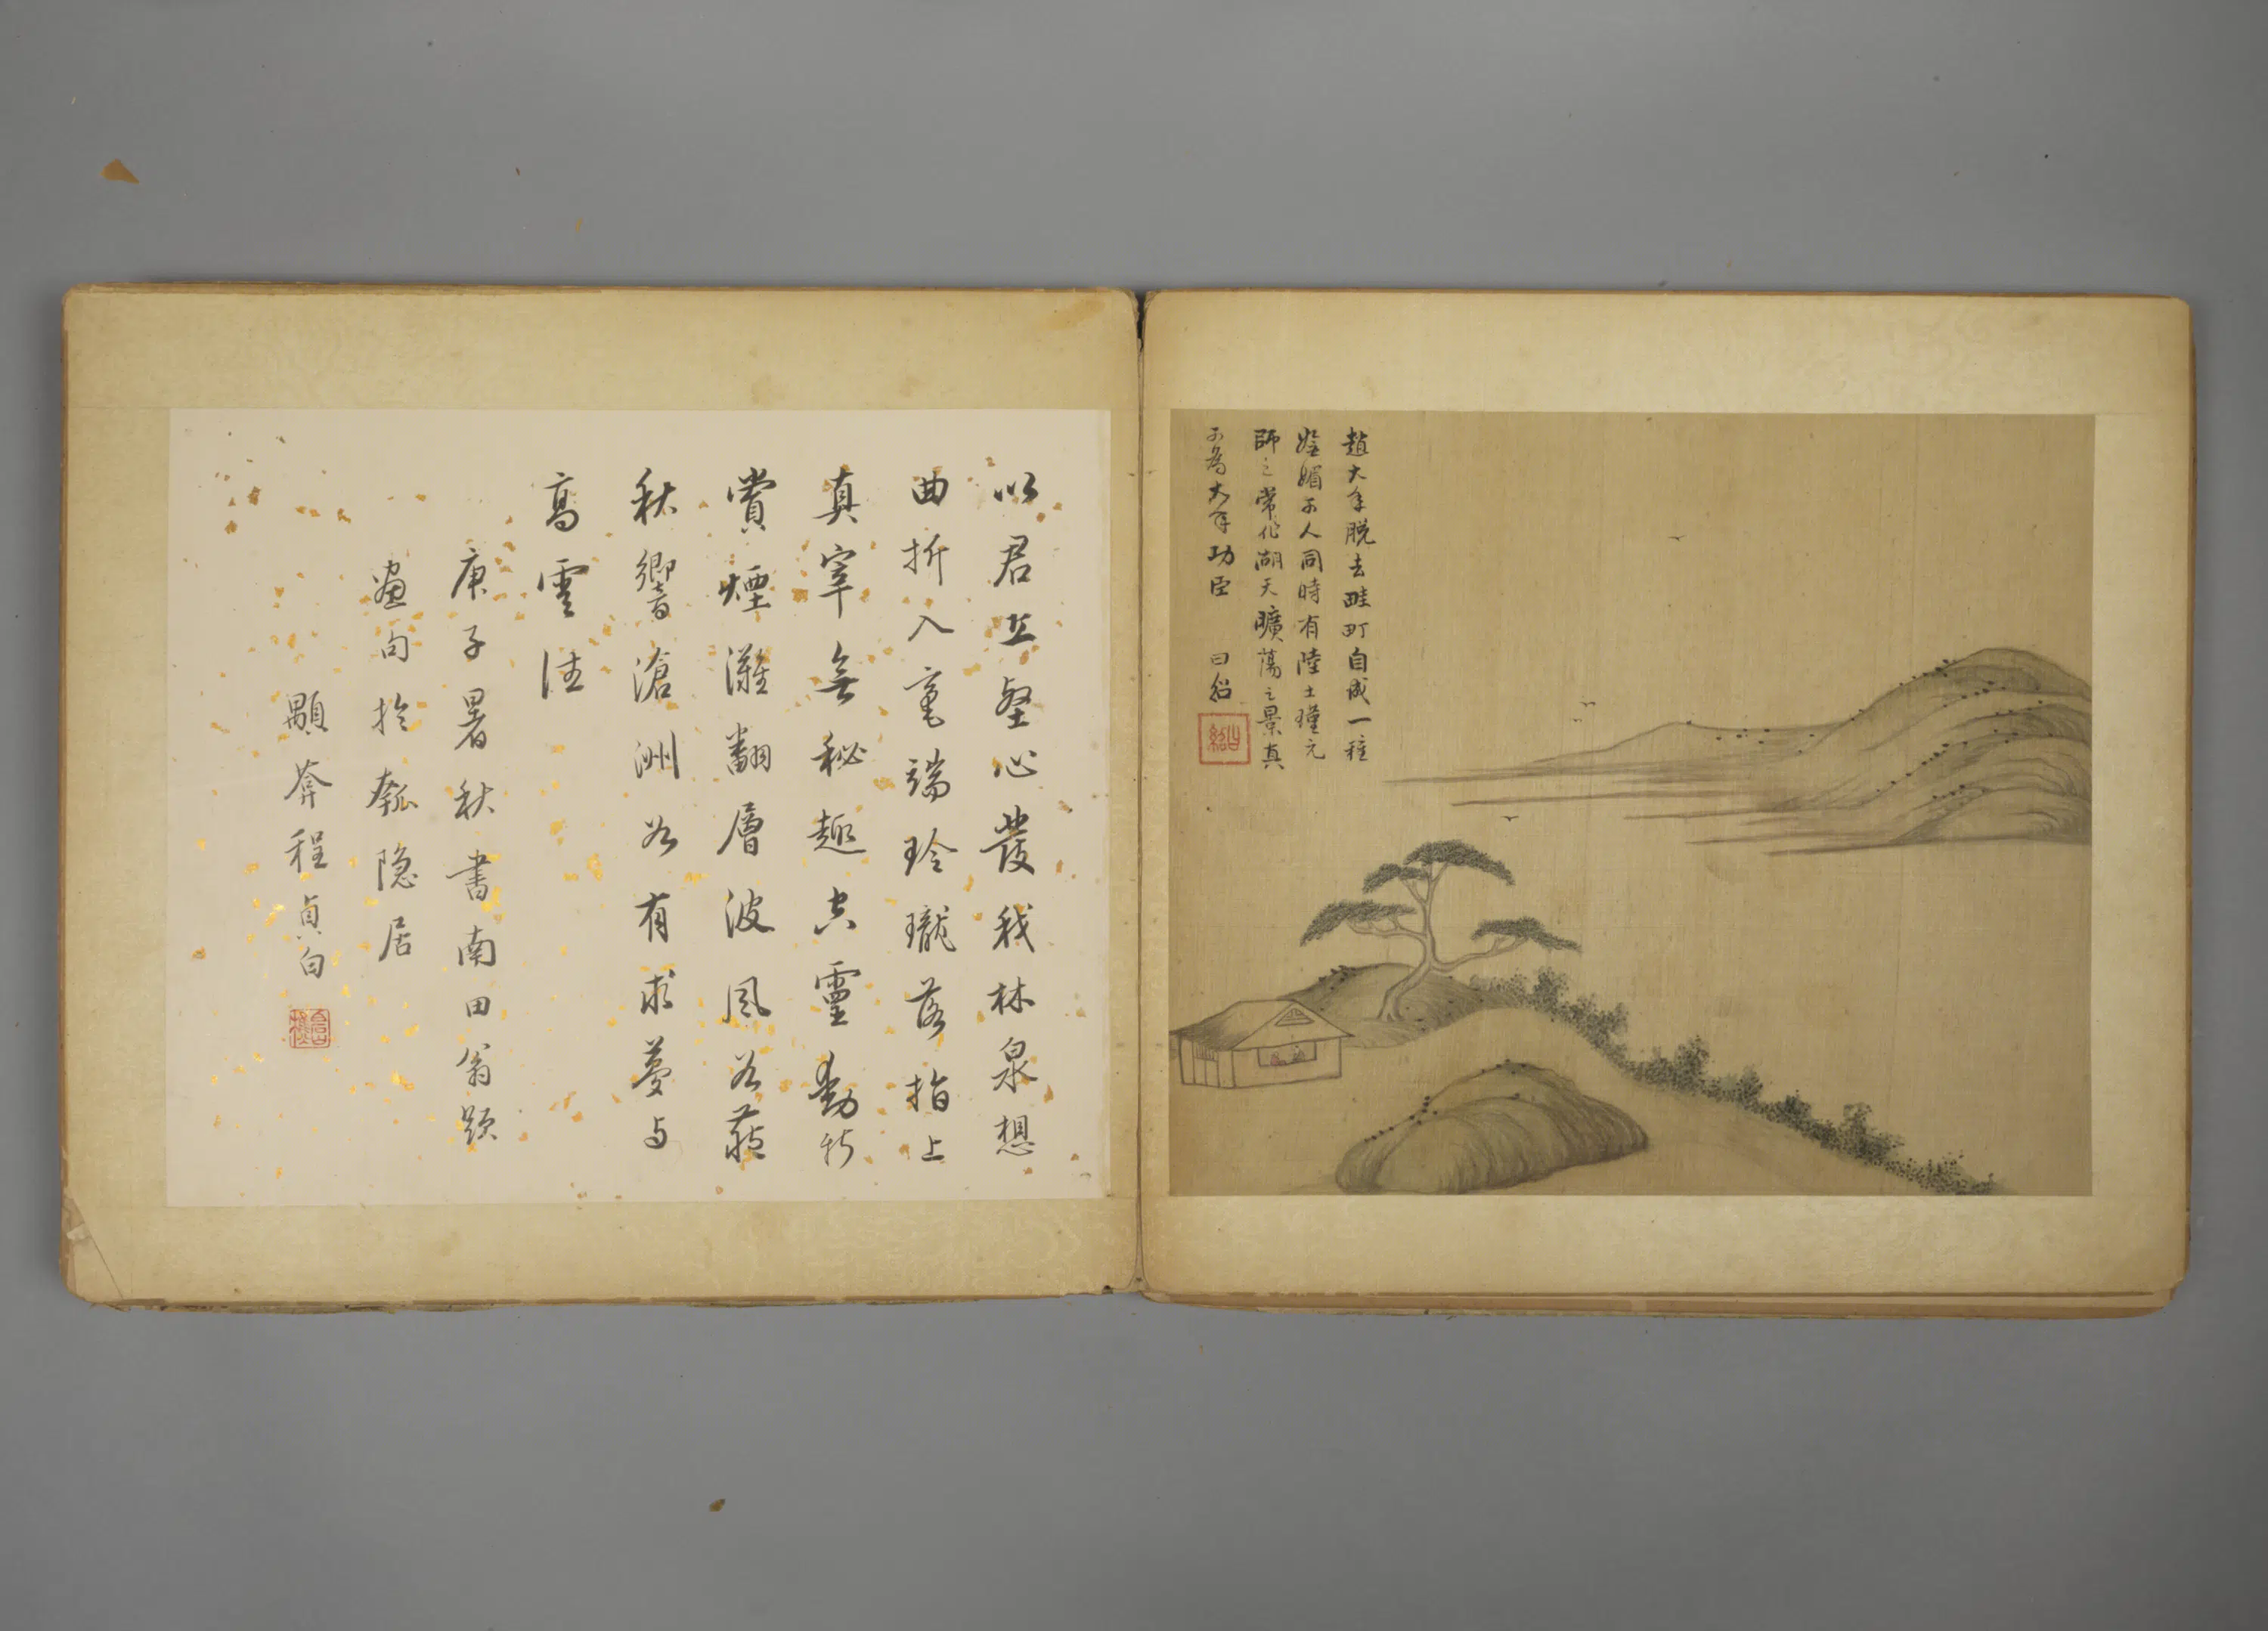 趙大年脫去畦町自成一種
嫵媚可人同時有陸士瑾元
師之常作湖天曠蕩之景真
可為大年功臣 曰紹
曰紹
以君丘壑心發我林泉想
曲折入毫端玲瓏落指上
真宰無秘趣空靈動新
賞煙灘翻層波風谷蔽
秋響滄洲如有求夢与
高雲往
庚子暑秋書南田翁題
畫句於瓠隱居
顒莽程貞白